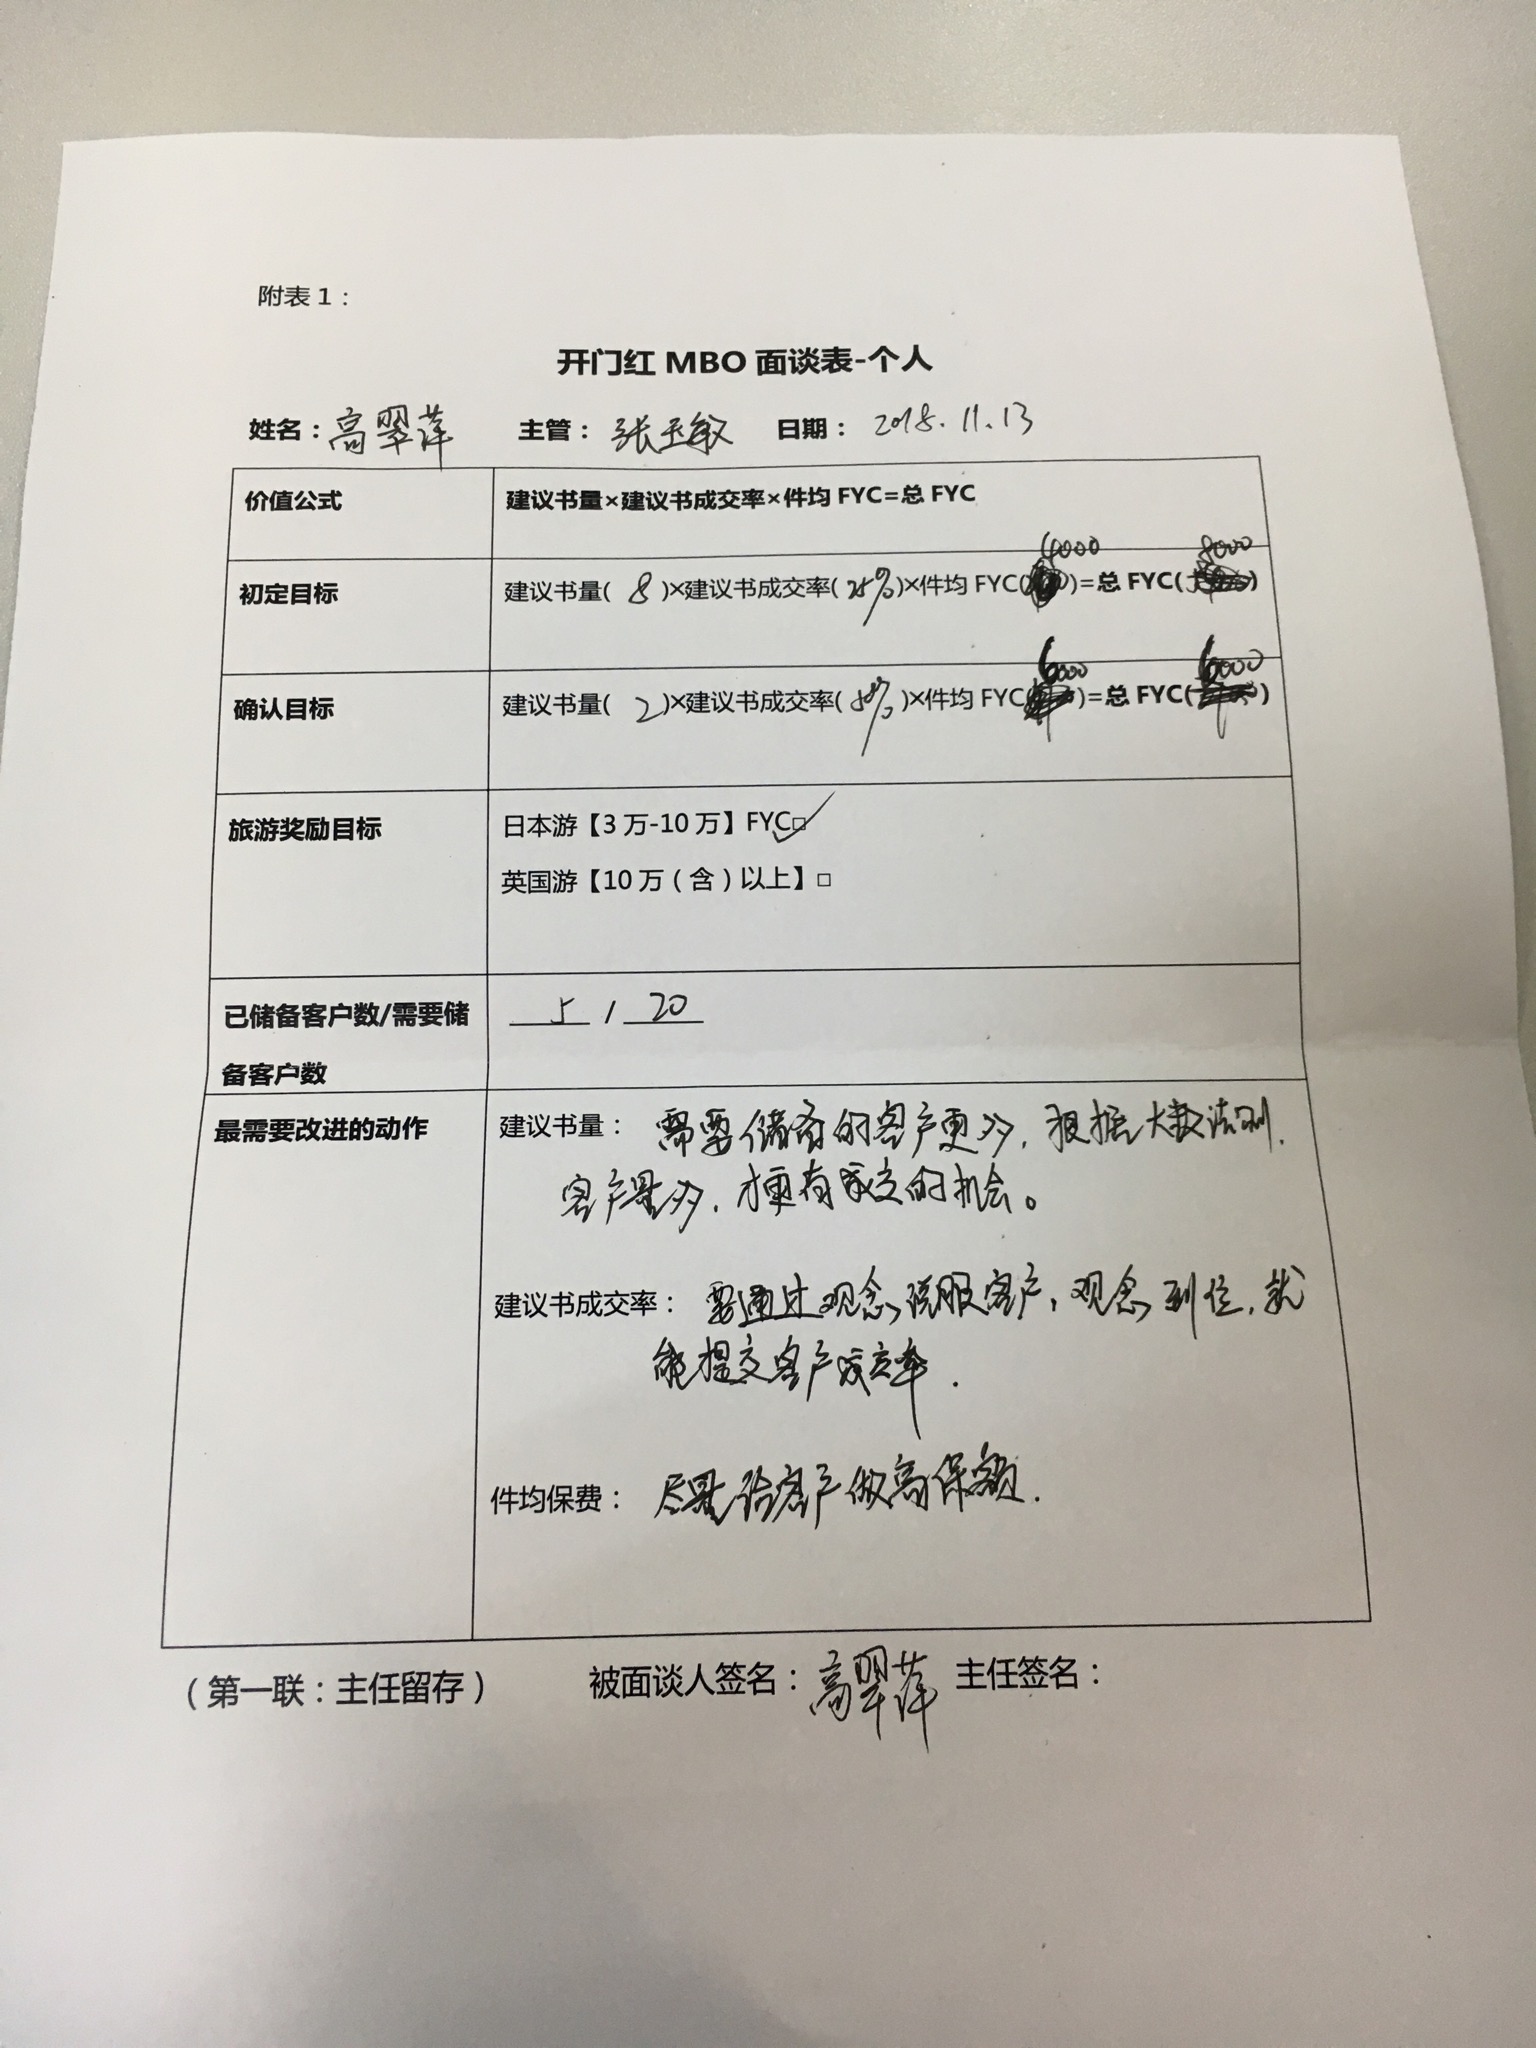 附表1：
开门红 MBO 面谈表-个人
姓名：高翠萍 主管：张玉敏 日期：2018.11.13
价值公式 建议书量×建议书成交率×件均 FYC=总 FYC
4000 8000
初定目标 建议书量( 8 )×建议书成交率( 25% )×件均 FYC( )=总 FYC( )
6000 6000
确认目标 建议书量( 2 )×建议书成交率( 50% )×件均 FYC( )=总 FYC( )
旅游奖励目标 日本游【3万-10万】FYC□✓
英国游【10万（含）以上】□
已储备客户数/需要储 5 / 20
备客户数
最需要改进的动作 建议书量： 需要储备的客户更多，根据大数法则，
客户量多，才更有成交的机会。
建议书成交率： 要通过观念说服客户，观念到位，就
能提交客户成交率.
件均保费： 尽量给客户做高保额.
（第一联：主任留存） 被面谈人签名：高翠萍 主任签名：